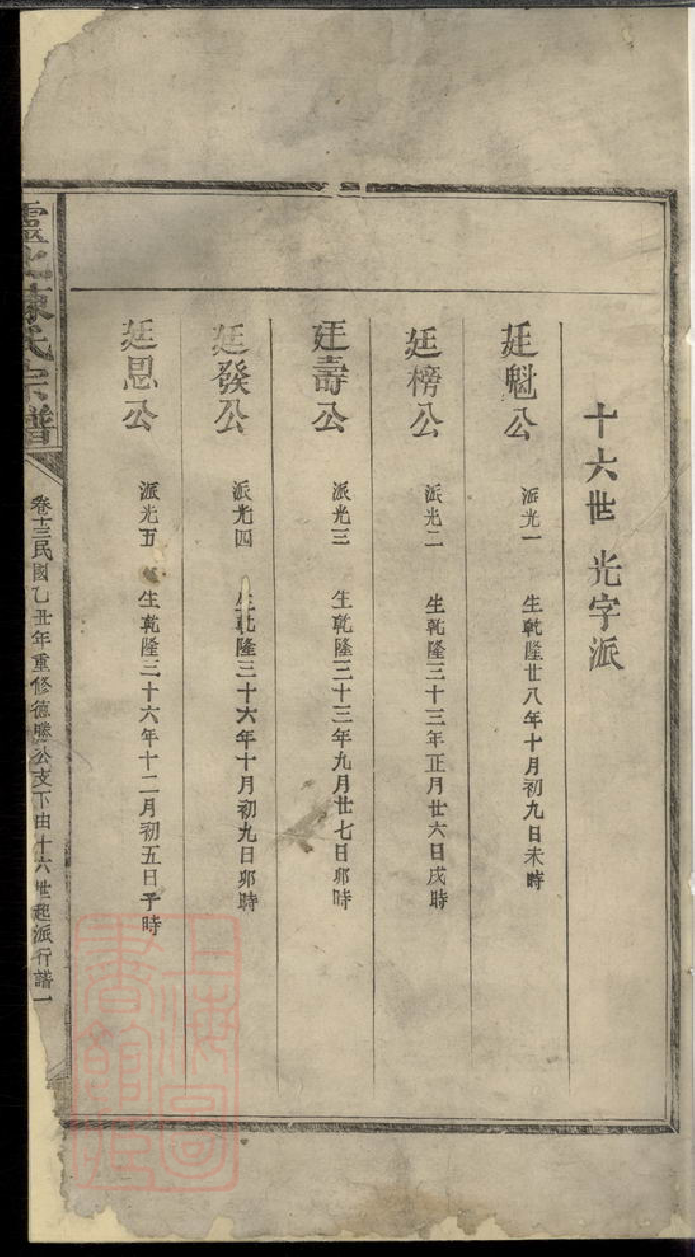 十六世 光字派
廷魁公 派光一 生乾隆廿八年十月初九日未時
廷榜公 派光二 生乾隆三十三年正月廿六日戌時
廷壽公 派光三 生乾隆三十三年九月廿七日卯時
廷發公 派光四 生乾隆三十六年十月初九日卯時
廷恩公 派光五 生乾隆三十六年十二月初五日子時
陳氏宗譜
卷十三民國乙丑年重修德勝公支下由十六世起派行譜一
上海圖書館藏